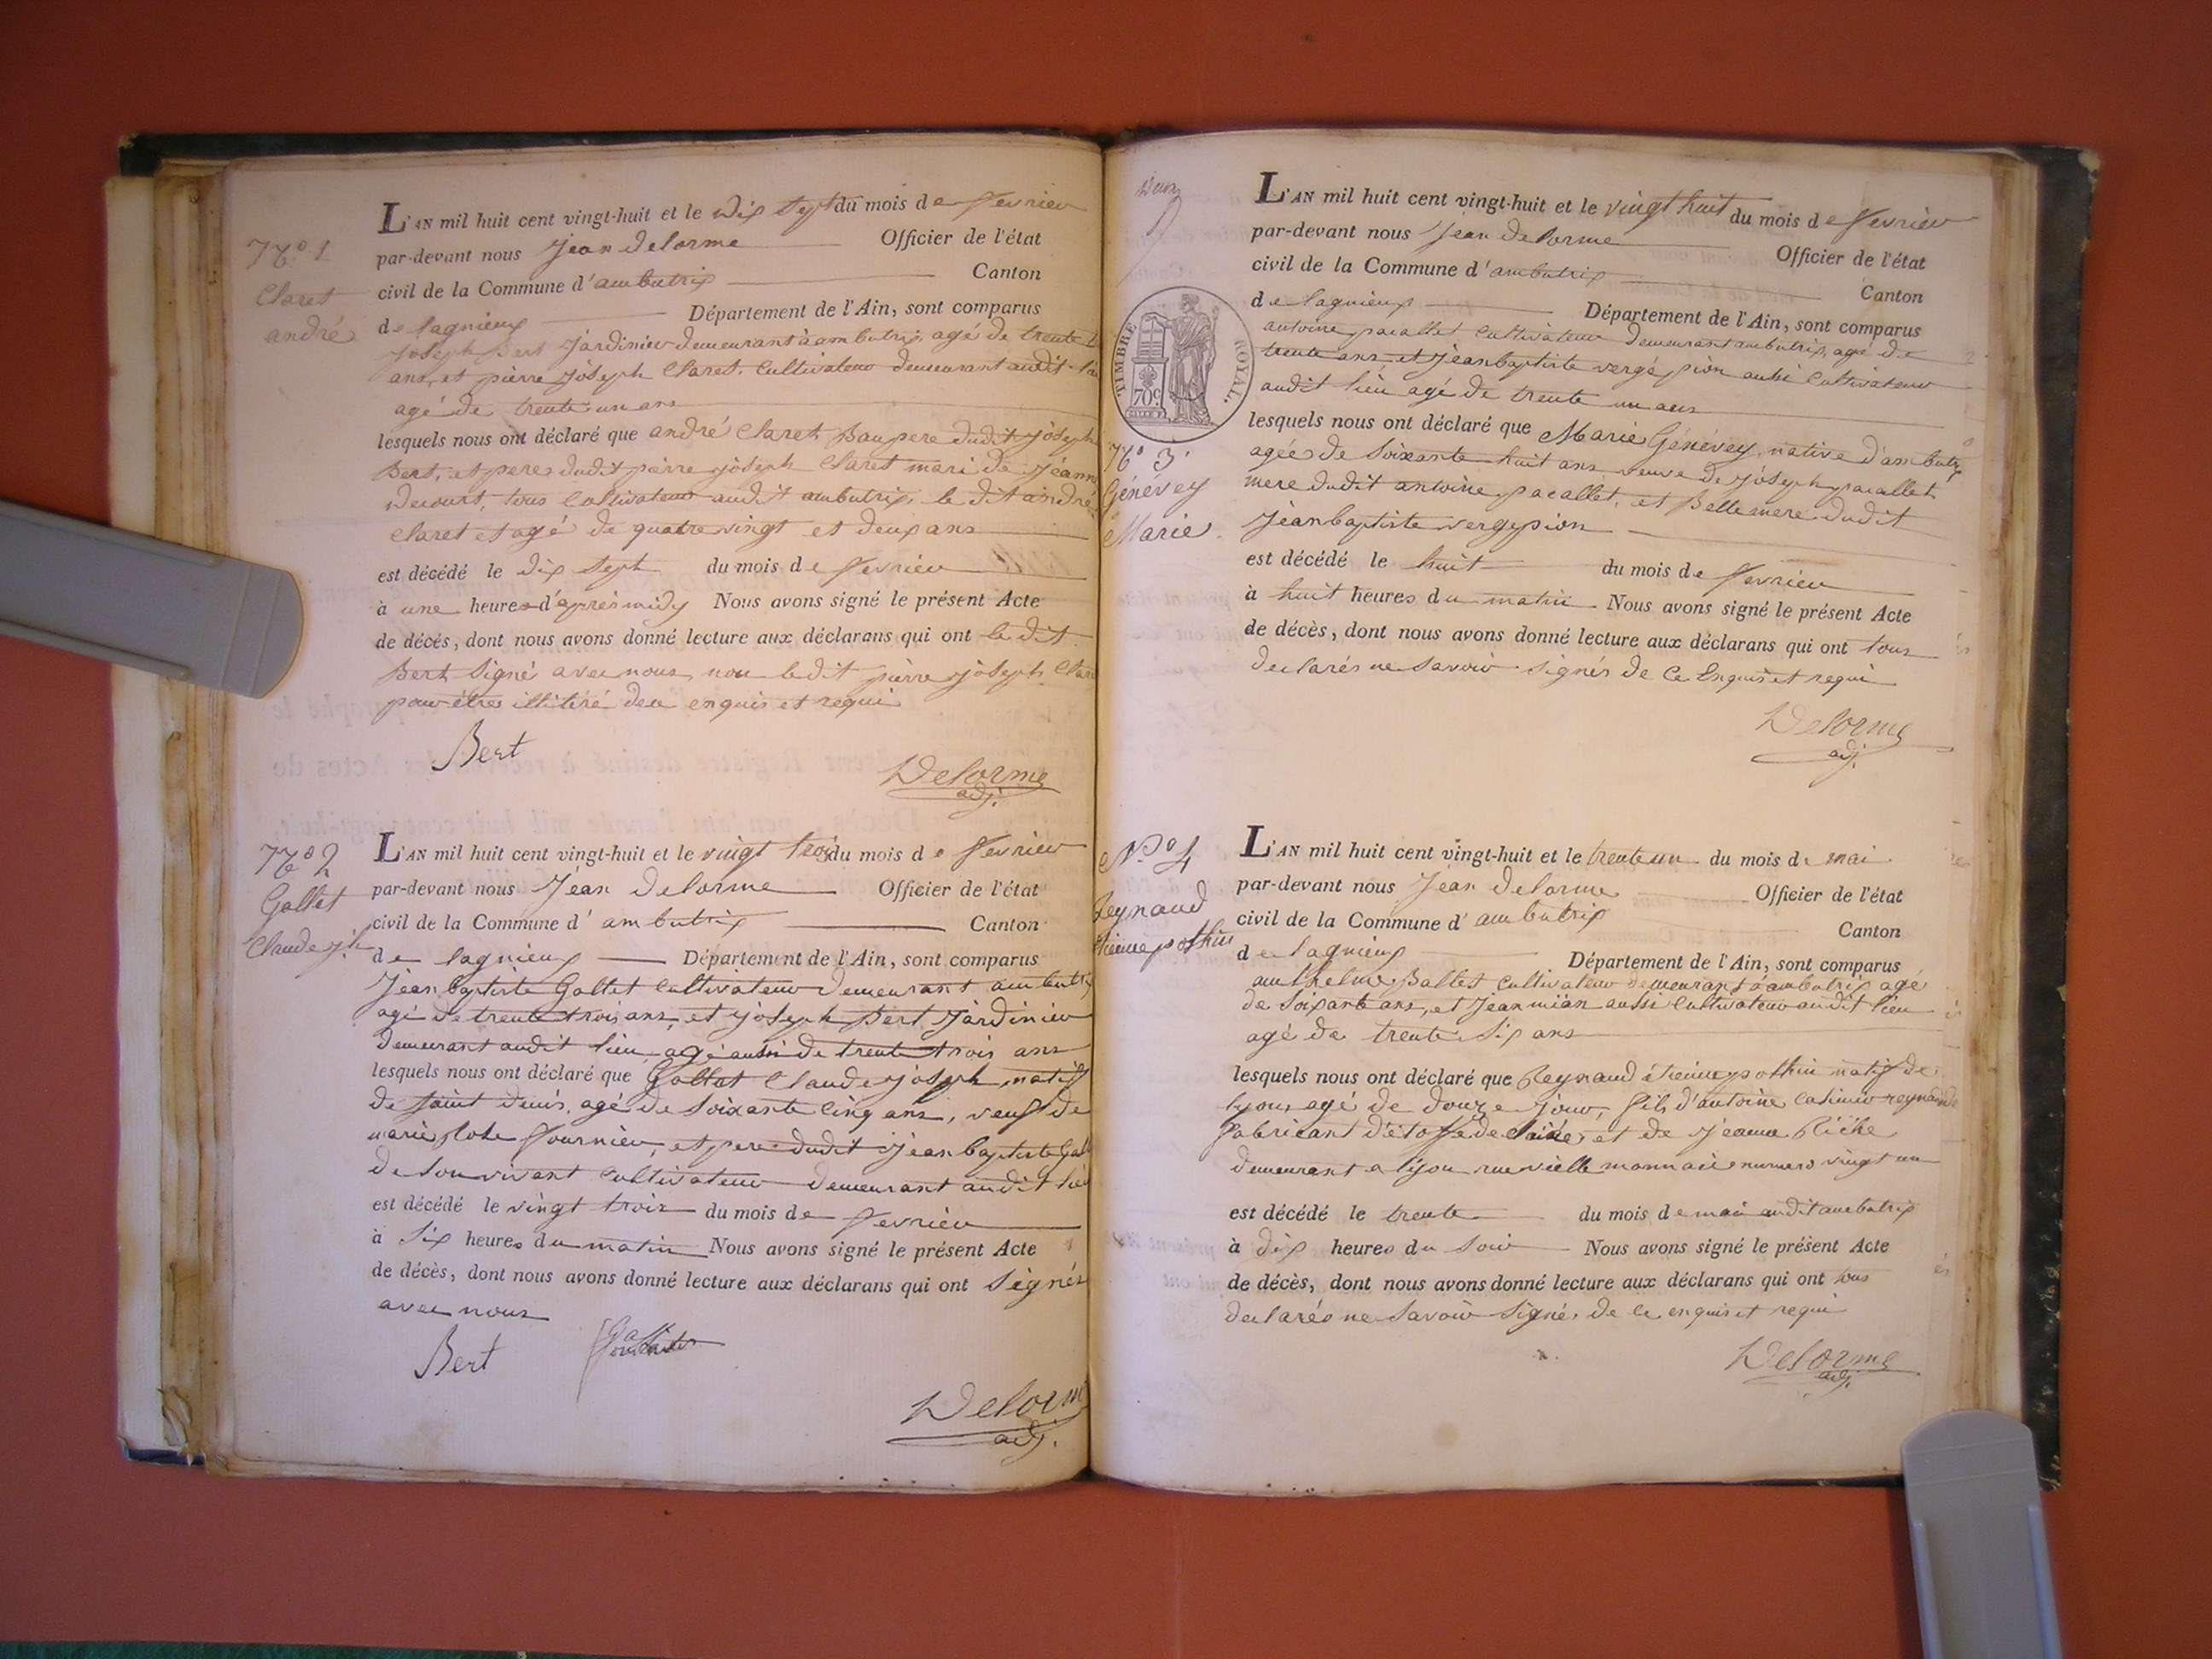 N.o 1
Claret
andré
L'AN mil huit cent vingt-huit et le dix sept du mois de fevrier
par-devant nous Jean Delorme Officier de l'état
civil de la Commune d'ambutrix Canton
de lagnieux Département de l'Ain, sont comparus
joseph Bert jardinier demeurant à ambutrix agé de trente
ans, et pierre joseph Claret, Cultivateur demeurant audit
agé de trente un ans
lesquels nous ont déclaré que andré Claret Baupere dudit joseph
Bert, et pere dudit pierre joseph Claret mari de jeanne
Decourt, tous Cultivateur audit ambutrix, le dit andré
Claret et agé de quatre vingt et deux ans
est décédé le dix sept du mois de fevrier
à une heures d'après midy Nous avons signé le présent Acte
de décès, dont nous avons donné lecture aux déclarans qui ont le dit
Bert Signé avec nous, non le dit pierre joseph
pour être illitéré de ce enquis et requi
Bert
Delorme
adj.
N.o 2
Gallet
Claude j.h
L'AN mil huit cent vingt-huit et le vingt trois du mois de fevrier
par-devant nous Jean Delorme Officier de l'état
civil de la Commune d' ambutrix Canton
de lagnieux Département de l'Ain, sont comparus
Jean baptiste Gallet Cultivateur demeurant ambutrix
agé de trente trois ans, et joseph Bert Jardinier
demeurant audit lieu, agé aussi de trente trois ans
lesquels nous ont déclaré que Gallet Claude joseph natif
de saint denis, agé de Soixante Cinq ans, veuf de
marie flote fournier, et pere dudit Jean baptiste
de Son vivant cultivateur demeurant audit lieu
est décédé le vingt trois du mois de fevrier
à Six heures du matin Nous avons signé le présent Acte
de décès, dont nous avons donné lecture aux déclarans qui ont Signés
avec nous
Bert
Delorme
adj.
Deux
TIMBRE ROYAL.
70c
N.o 3
Génévey
Marie
L'AN mil huit cent vingt-huit et le vingt huit du mois de fevrier
par-devant nous Jean Delorme Officier de l'état
civil de la Commune d'ambutrix Canton
de lagnieux Département de l'Ain, sont comparus
antoine pacallet Cultivateur demeurant ambutrix, agé de
trente ans, et jean baptiste vergé pion aussi Cultivateur
audit lieu agé de trente un ans
lesquels nous ont déclaré que Marie Génévey, native d'ambutrix
agée de Soixante huit ans veuve de joseph pacallet
mere dudit antoine pacallet, et Belle mere dudit
Jean baptiste vergepion
est décédé le huit du mois de fevrier
à huit heures du matin Nous avons signé le présent Acte
de décès, dont nous avons donné lecture aux déclarans qui ont tous
declarés ne Savoir signés de Ce Enquis et requi
Delorme
adj.
N.o 4
Reynaud
étienne pothin
L'AN mil huit cent vingt-huit et le trente un du mois de mai
par-devant nous Jean Delorme Officier de l'état
civil de la Commune d' ambutrix Canton
de lagnieux Département de l'Ain, sont comparus
anthelme Ballet Cultivateur demeurant à ambutrix agé
de Soixante ans, et Jean mian aussi Cultivateur audit lieu
agé de trente Six ans
lesquels nous ont déclaré que Reynaud étienne pothin natif de
lyon, agé de douze jour, fils d'antoine Casimir reynaud
fabricant d'étoffe de Soie, et de jeanne Riche
demeurant a lyon rue vielle monnaie numero vingt un
est décédé le trente du mois de mai audit ambutrix
à dix heures du Soir Nous avons signé le présent Acte
de décès, dont nous avons donné lecture aux déclarans qui ont tous
declarés ne Savoir Signé, de ce enquis et requi
Delorme
adj.